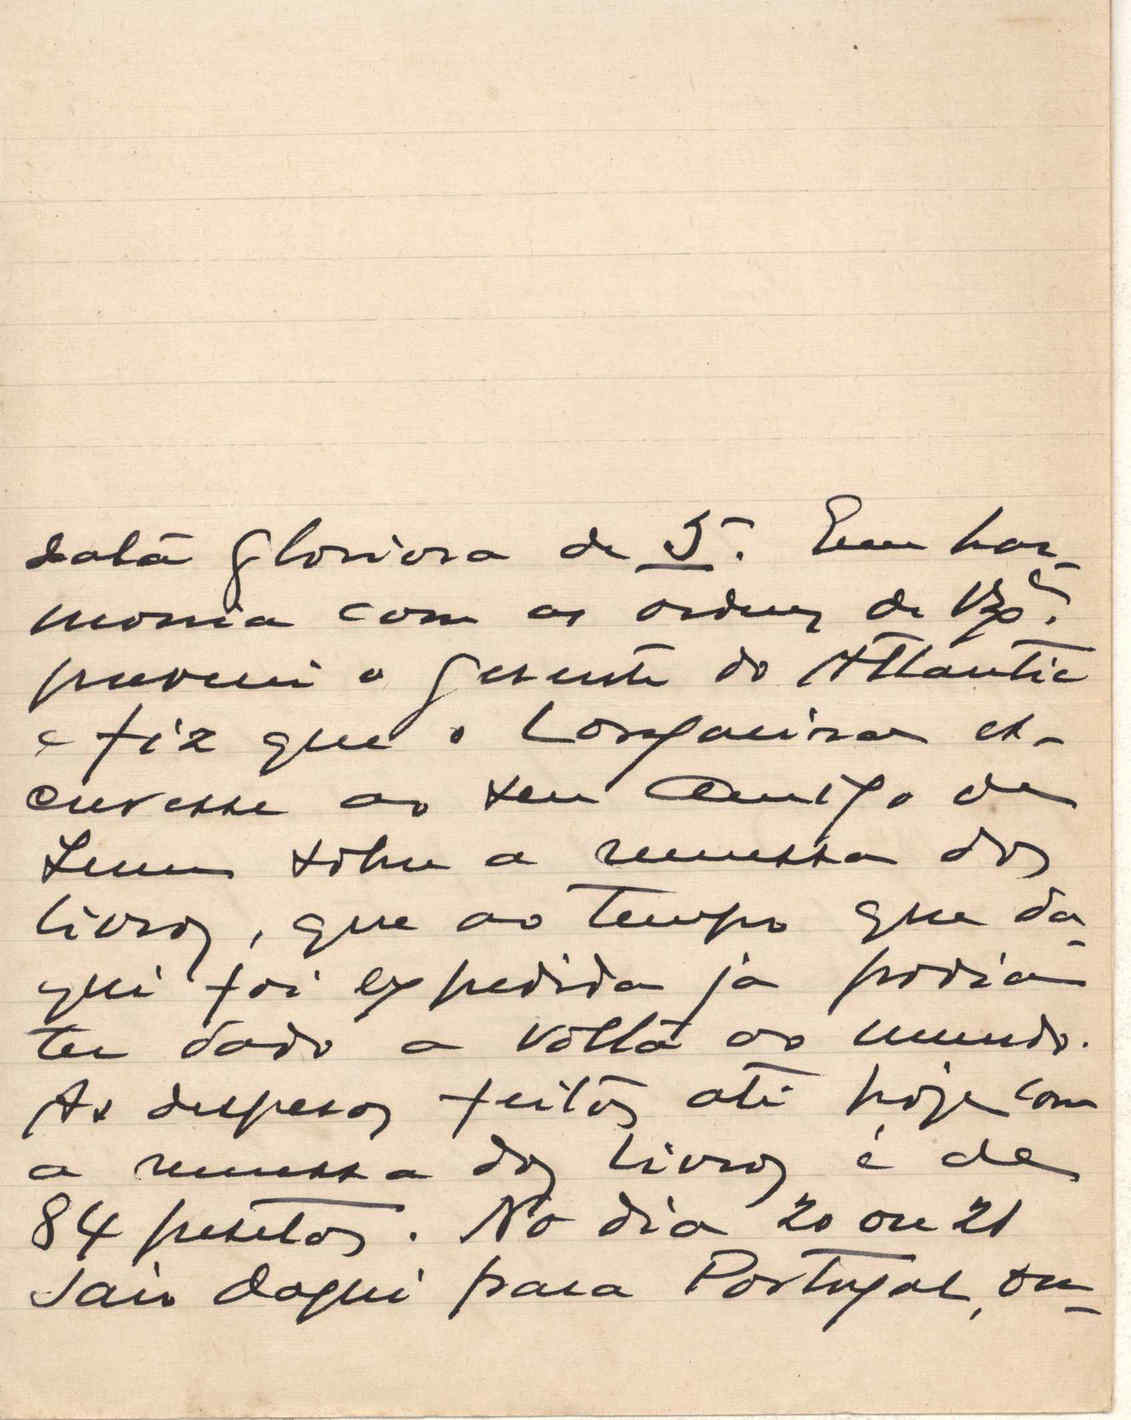 data gloriosa de 5. Em har-
monia com as ordens de V.
preveni o gerente do Atlantic
e fiz que o Longueira es-
crevesse ao seu amigo de
sobre a remessa dos
livros, que ao tempo que da-
qui foi expedida já podia
ter dado a volta ao mundo.
As despesas feitas até hoje com
a remessa dos livros é de
84 pesetas. No dia 20 ou 21
saio daqui para Portugal, on-